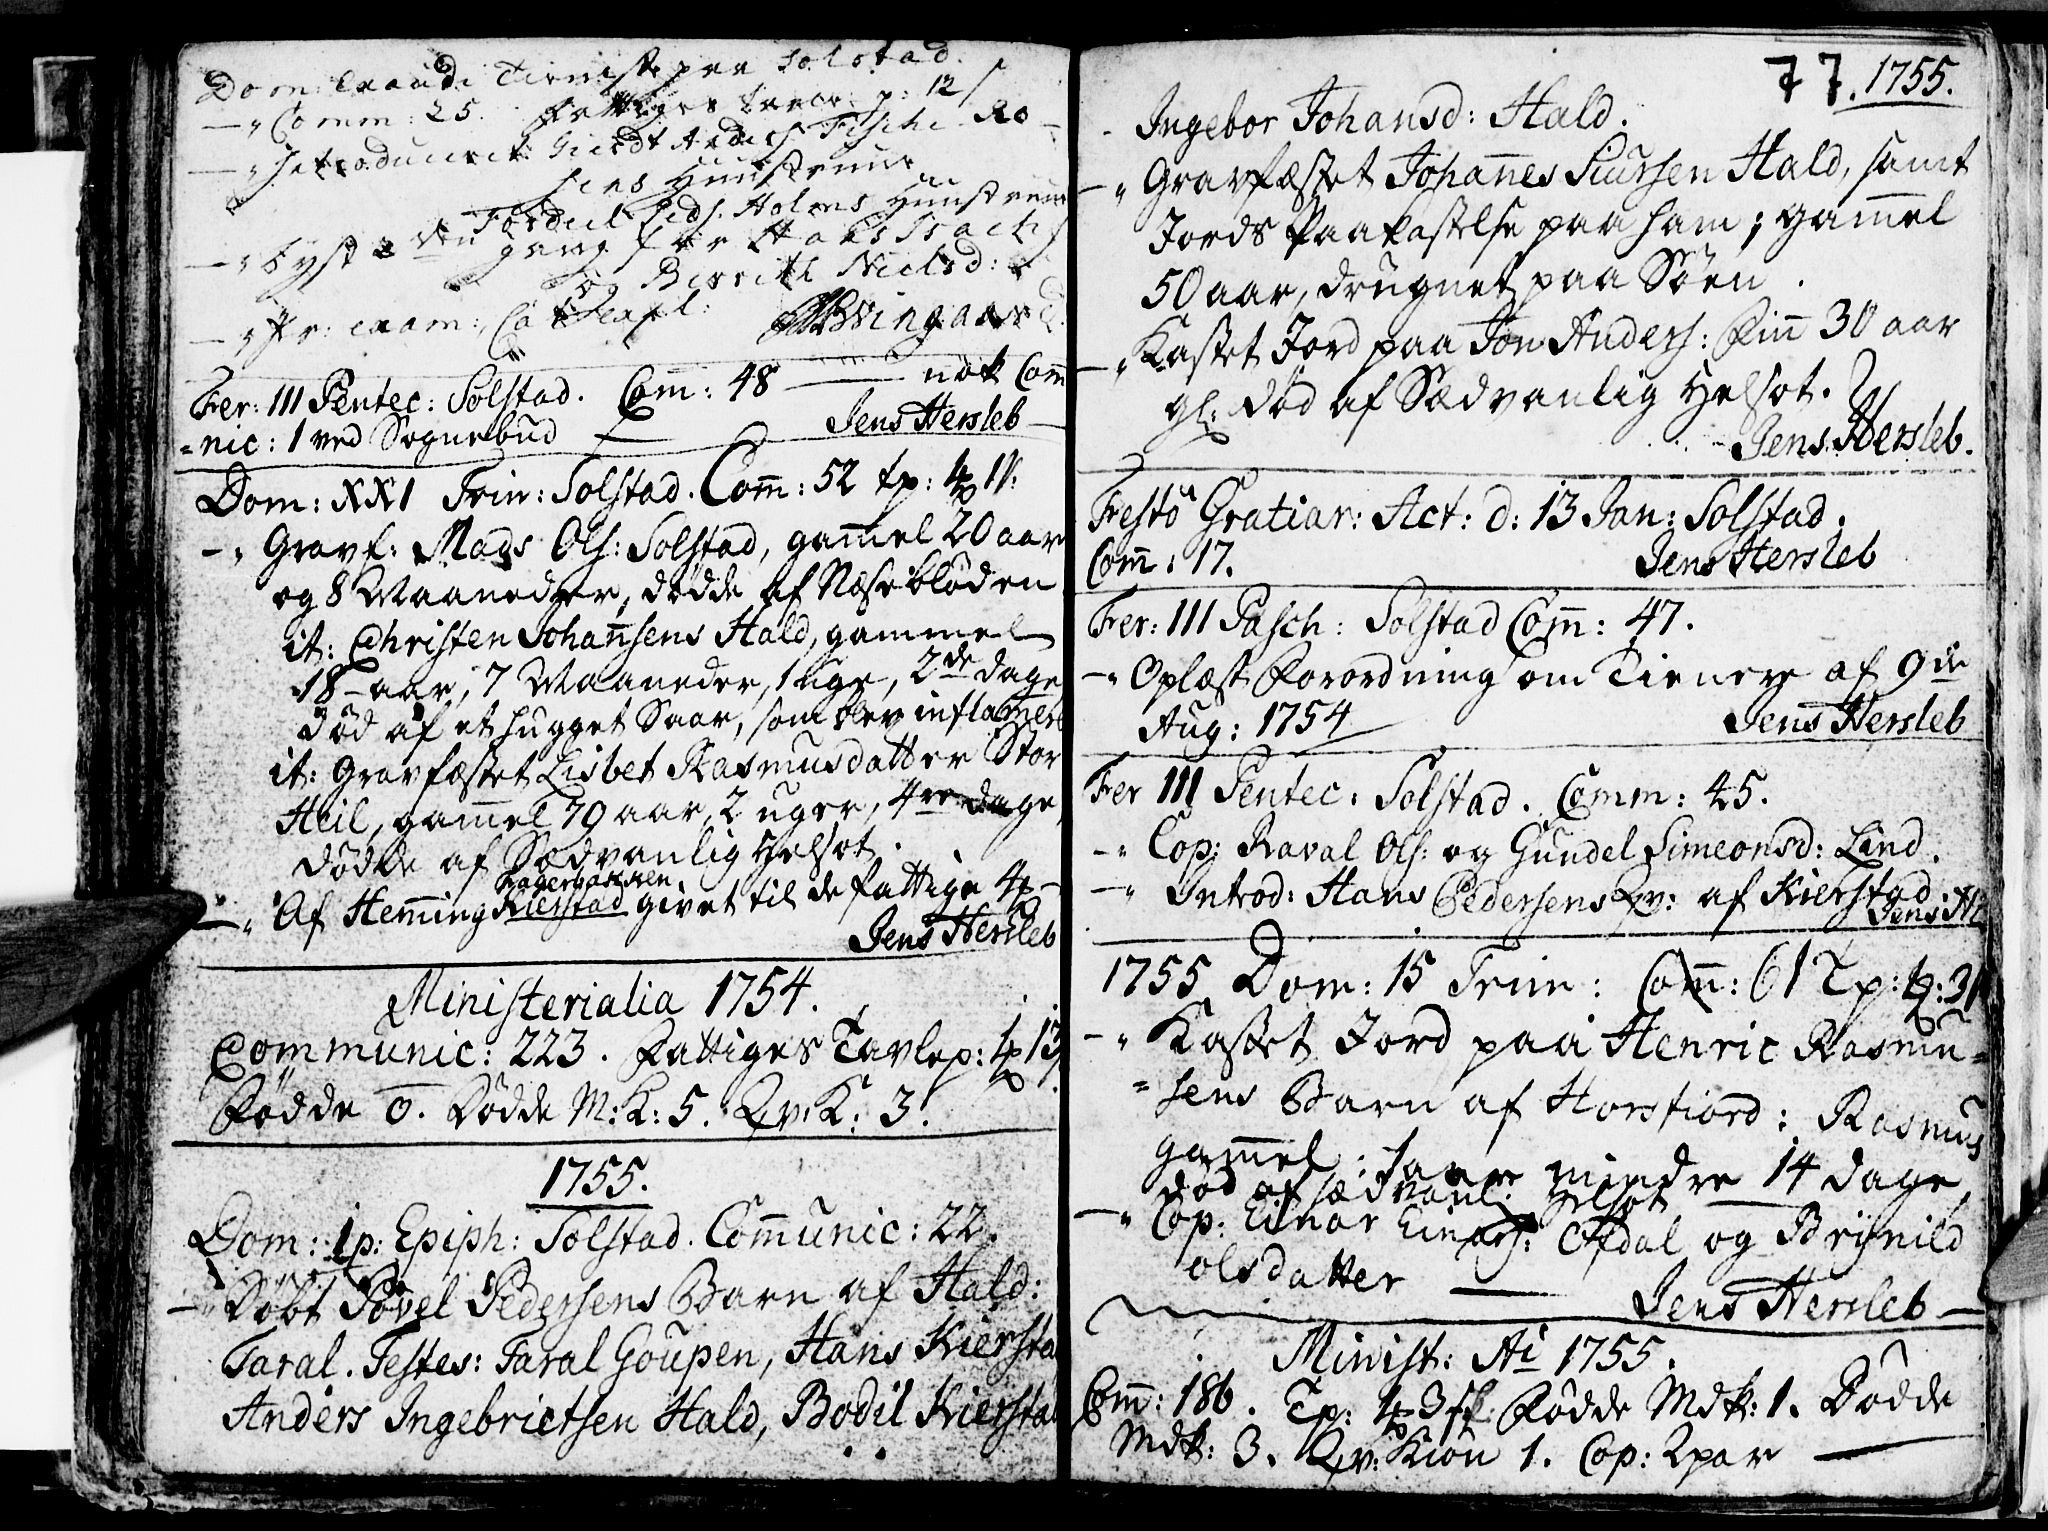 Dom: Exaudi Tieniste paa Solstad.
—" Comm: 25. Fattiges Tavle p: 12 /
—" Introduceret: Giendt Anders Fische Ro-
sens Hustrue
Tordiel Eids: Holms Hustrue
—" Lyst 2den gang for Hans Isachs:
og Berrith Nielsd:
—" Pr: exam: Cat: Wingaard.
Fer: III Pentec: Solstad. Com̄: 48 — nok Com̄
=nic: 1 ved Sognebud — Jens Hersleb —
Dom: XXI Trin: Solstad. Com̄: 52 tp:
—" Gravf: Mads Ols: Solstad, gam̄el 20 aar
og 8 Maaneder, døde af Næseblöden
it: Christen Johan̄sens Hald, gammel
18- aar, 7 Maaneder, 1 uge, 2de dage
död af et hugget Saar, som blev inflamer
it: Gravfæstet Lisbet Rasmusdatter Stor
Heil, gam̄el 79 aar, 2 uger, 4re dage,
dödde af Sædvanlig Helsot.
—" Af Hem̄ing Kierstad givet til de fattige
Jens Hersleb
Ministerialia 1754.
Communic: 223. Fattiges Tavlep: 13
Födde 0. Dödde M:K: 5. Qv:K: 3.
1755.
Dom: 1 p: Epiph: Solstad. Com̄unic: 22.
—" Döbt Povel Pedersens Barn af Hald:
Taral. Testes: Taral Goupen, Hans Kiersta
Anders Ingebrictsen Hald, Bodil Kiersta
77. 1755.
- Ingebor Johansd: Hald.
—" Gravfæstet Johan̄es Siursen Hald, samt
Jords Paakastelse paa ham; gam̄el
50 aar, drugnet paa Söen.
—" Kastet Jord paa Jon Anders: Fin̄ 30 aar
gl: död af Sædvanlig Helsot.
Jens Hersleb.
Festo Gratiar: Act: d: 13 Jan: Solstad.
Com̄: 17. Jens Hersleb
Fer: III Pasch: Solstad Com̄: 47.
—" Oplæst Forordning om Tienere af 9de
Aug: 1754 Jens Hersleb
Fer III Pentec: Solstad. Comm: 45.
—" Cop: Raval Ols: og Gundel Simeonsd: Lind.
—" Introd: Hans Pedersens Qv: af Kierstad. Jens H
1755 Dom: 15 Trin: Com̄: 61 Tp: 31
—" Kastet Jord paa Henric Rasmu=
=sens Barn af Horsfiord: Rasmus
gam̄el: 1 aar mindre 14 dage,
död af sædvanl: Helsot
—" Cop: Einar Einars: Opdal og Brÿnild
olsdatter — Jens Hersleb —
Minist: Ai 1755.
Com̄: 186. Tp: 3 Födde Mdk: 1. Dödde
Mdk: 3. Qv: Kiön 1. Cop: 2 par —